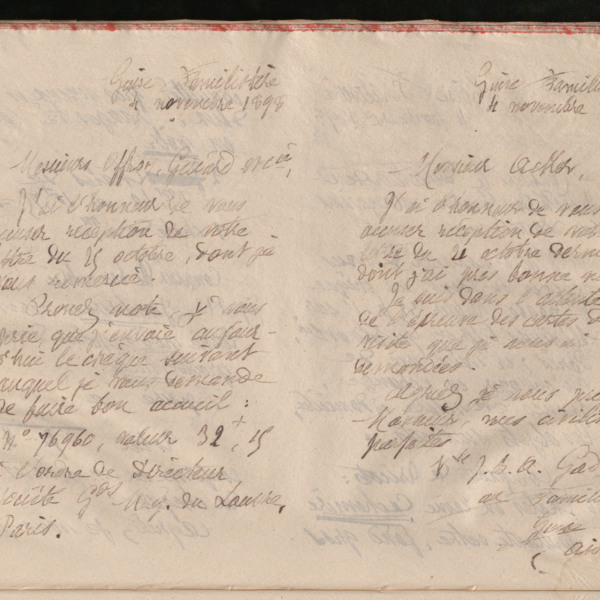 Guise Familistère
4 novembre 1898
Messieurs Offroy, Guiard et Cie,
J'ai l'honneur de vous
accuser réception de votre
lettre du 25 octobre, dont je
vous remercie.
Prenez note, je vous
prie que j'envoie aujour-
d'hui le chèque suivant
auquel je vous demande
de faire bon accueil :
No 76960, valeur 32+,15
à l'ordre de Directeur
Société Gds Mag. du Louvre,
Paris.
Guise Famili
4 novembre
Monsieur Acker,
J'ai l'honneur de vous
accuser réception de vot
lettre du 21 octobre derni
dont j'ai pris bonne n
Je suis dans l'attente
de l'épreuve des cartes d
visite que je vous ai
demandées.
Agréez je vous prie
Monsieur, mes civili
parfaites
Vve J. B. A. God
au Famili
Guise
Ais